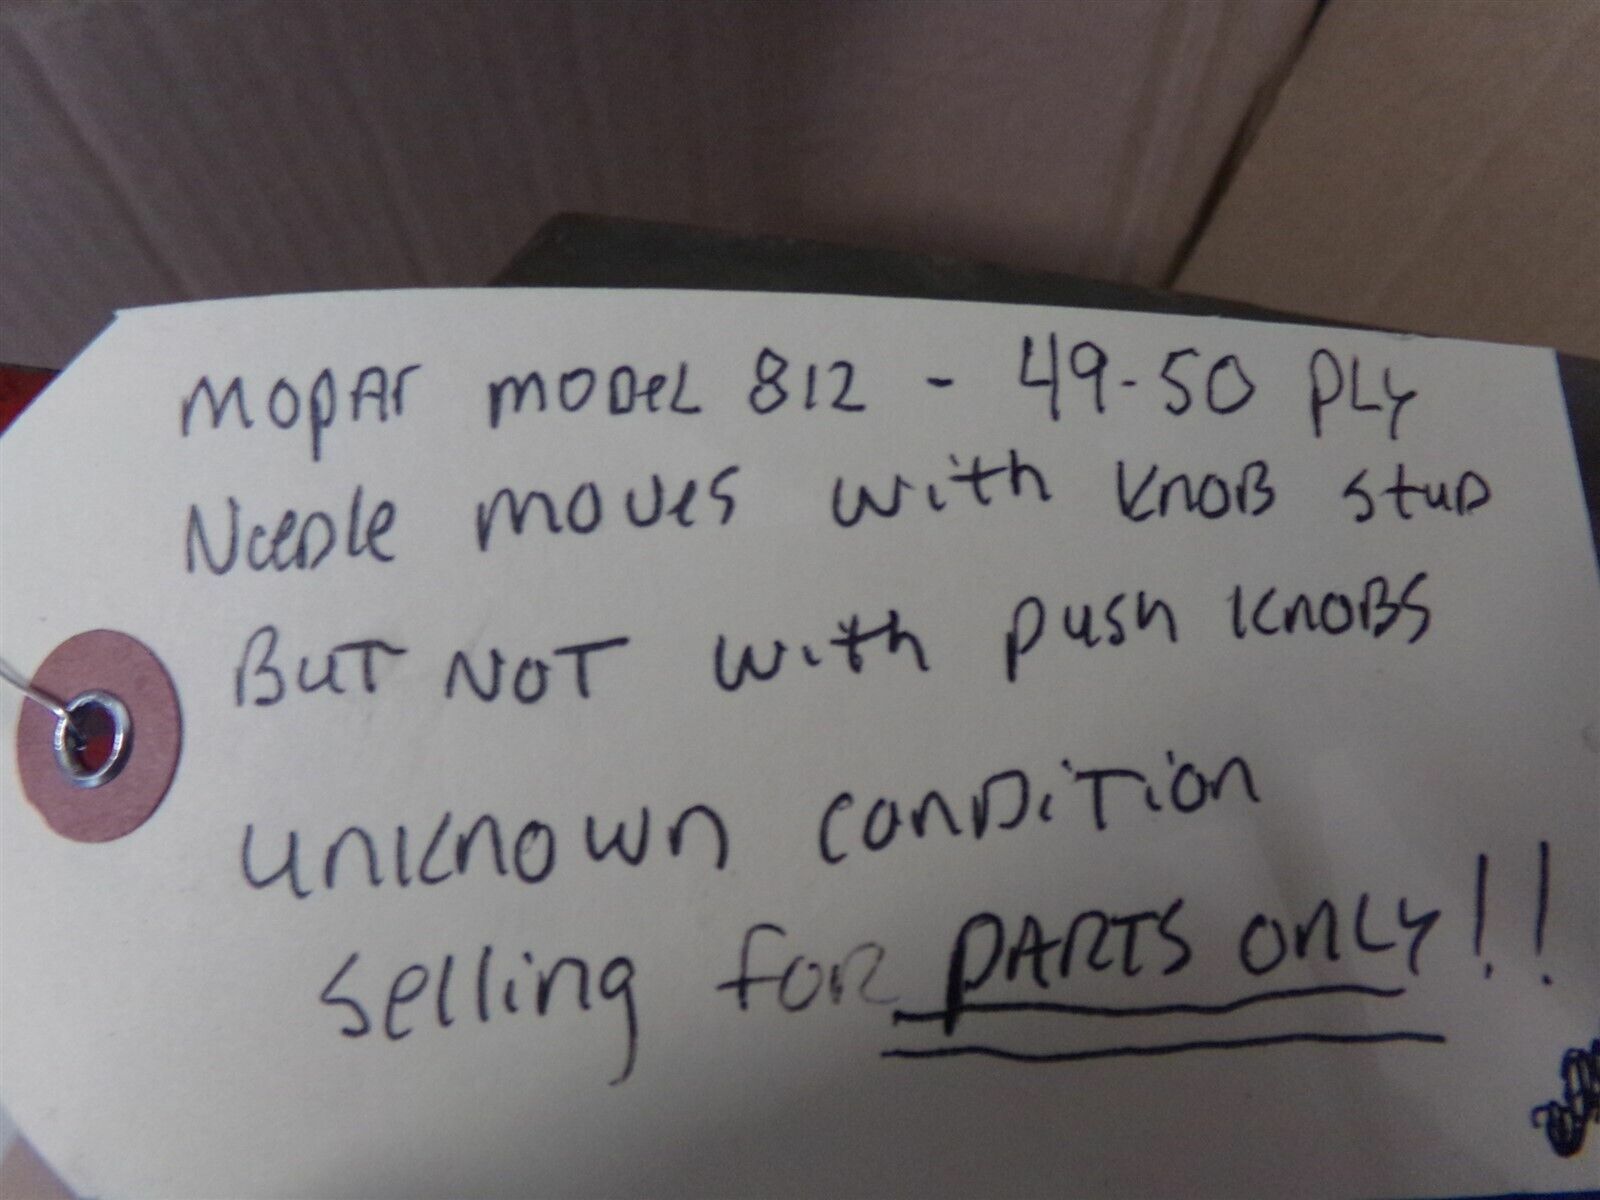 MOPAr MODeL 812 - 49-50 PLY
NeeDle moves with KnoB stuD
BuT NOT with push KnoBS
unknown conDiTion
selling foR PARTS ONLY!!